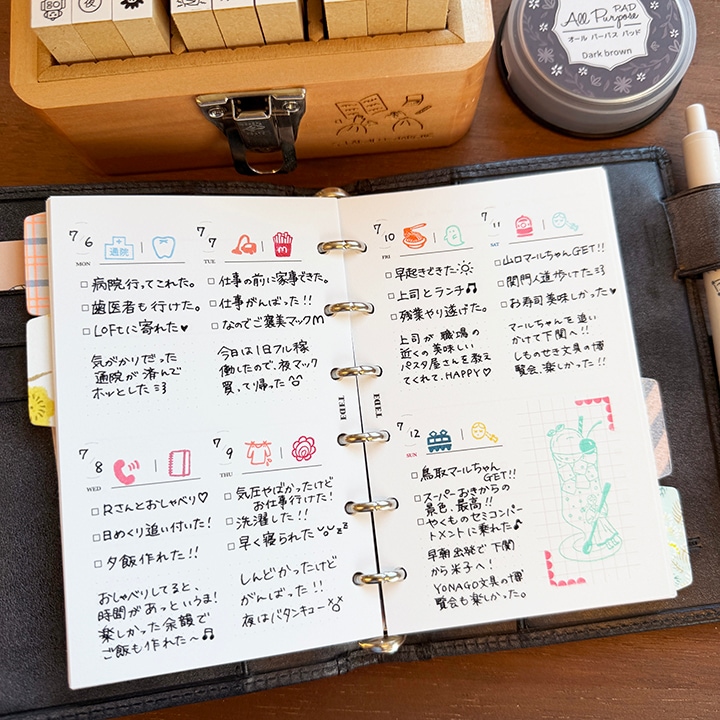 夜
All Purpose
PAD
オール パーパス パッド
Dark brown
7/6
MON
通院
□病院行ってこれた。
□歯医者も行けた。
□LOFTに寄れた♥
気がかりだった
通院が済んで
ホッとした
7/7
TUE
M
□仕事の前に家事できた。
□仕事がんばった!!
□なのでご褒美マックM
今日は1日フル稼
働したので、夜マック
買って帰った
7/8
WED
□Rさんとおしゃべり♡
□日めくり追い付いた!
□夕飯作れた!!
おしゃべりしてると、
時間があっというま!
楽しかった余韻で
ご飯も作れた〜♫
7/9
THU
□気圧やばかったけど
お仕事行けた!
□洗濯した!!
□早く寝られた zz
しんどかったけど
がんばった!!
夜はバタンキュー
EDiT
EDiT
7/10
FRI
□早起きできた
□上司とランチ♫
□残業やり遂げた。
上司が職場の
近くの美味しい
パスタ屋さんを教え
てくれて、HAPPY♡
7/11
SAT
□山口マールちゃんGET!!
□関門人道歩けた
□お寿司美味しかった♥
マールちゃんを追い
かけて下関へ!!
しものせき文具の博
覧会、楽しかった!!
7/12
SUN
□鳥取マールちゃん
GET!!
□スーパーおきからの
景色、最高!!
□やくものセミコンパー
トメントに乗れた♪
早朝出発で下関
から米子へ!
YONAGO文具の博
覧会も楽しかった。